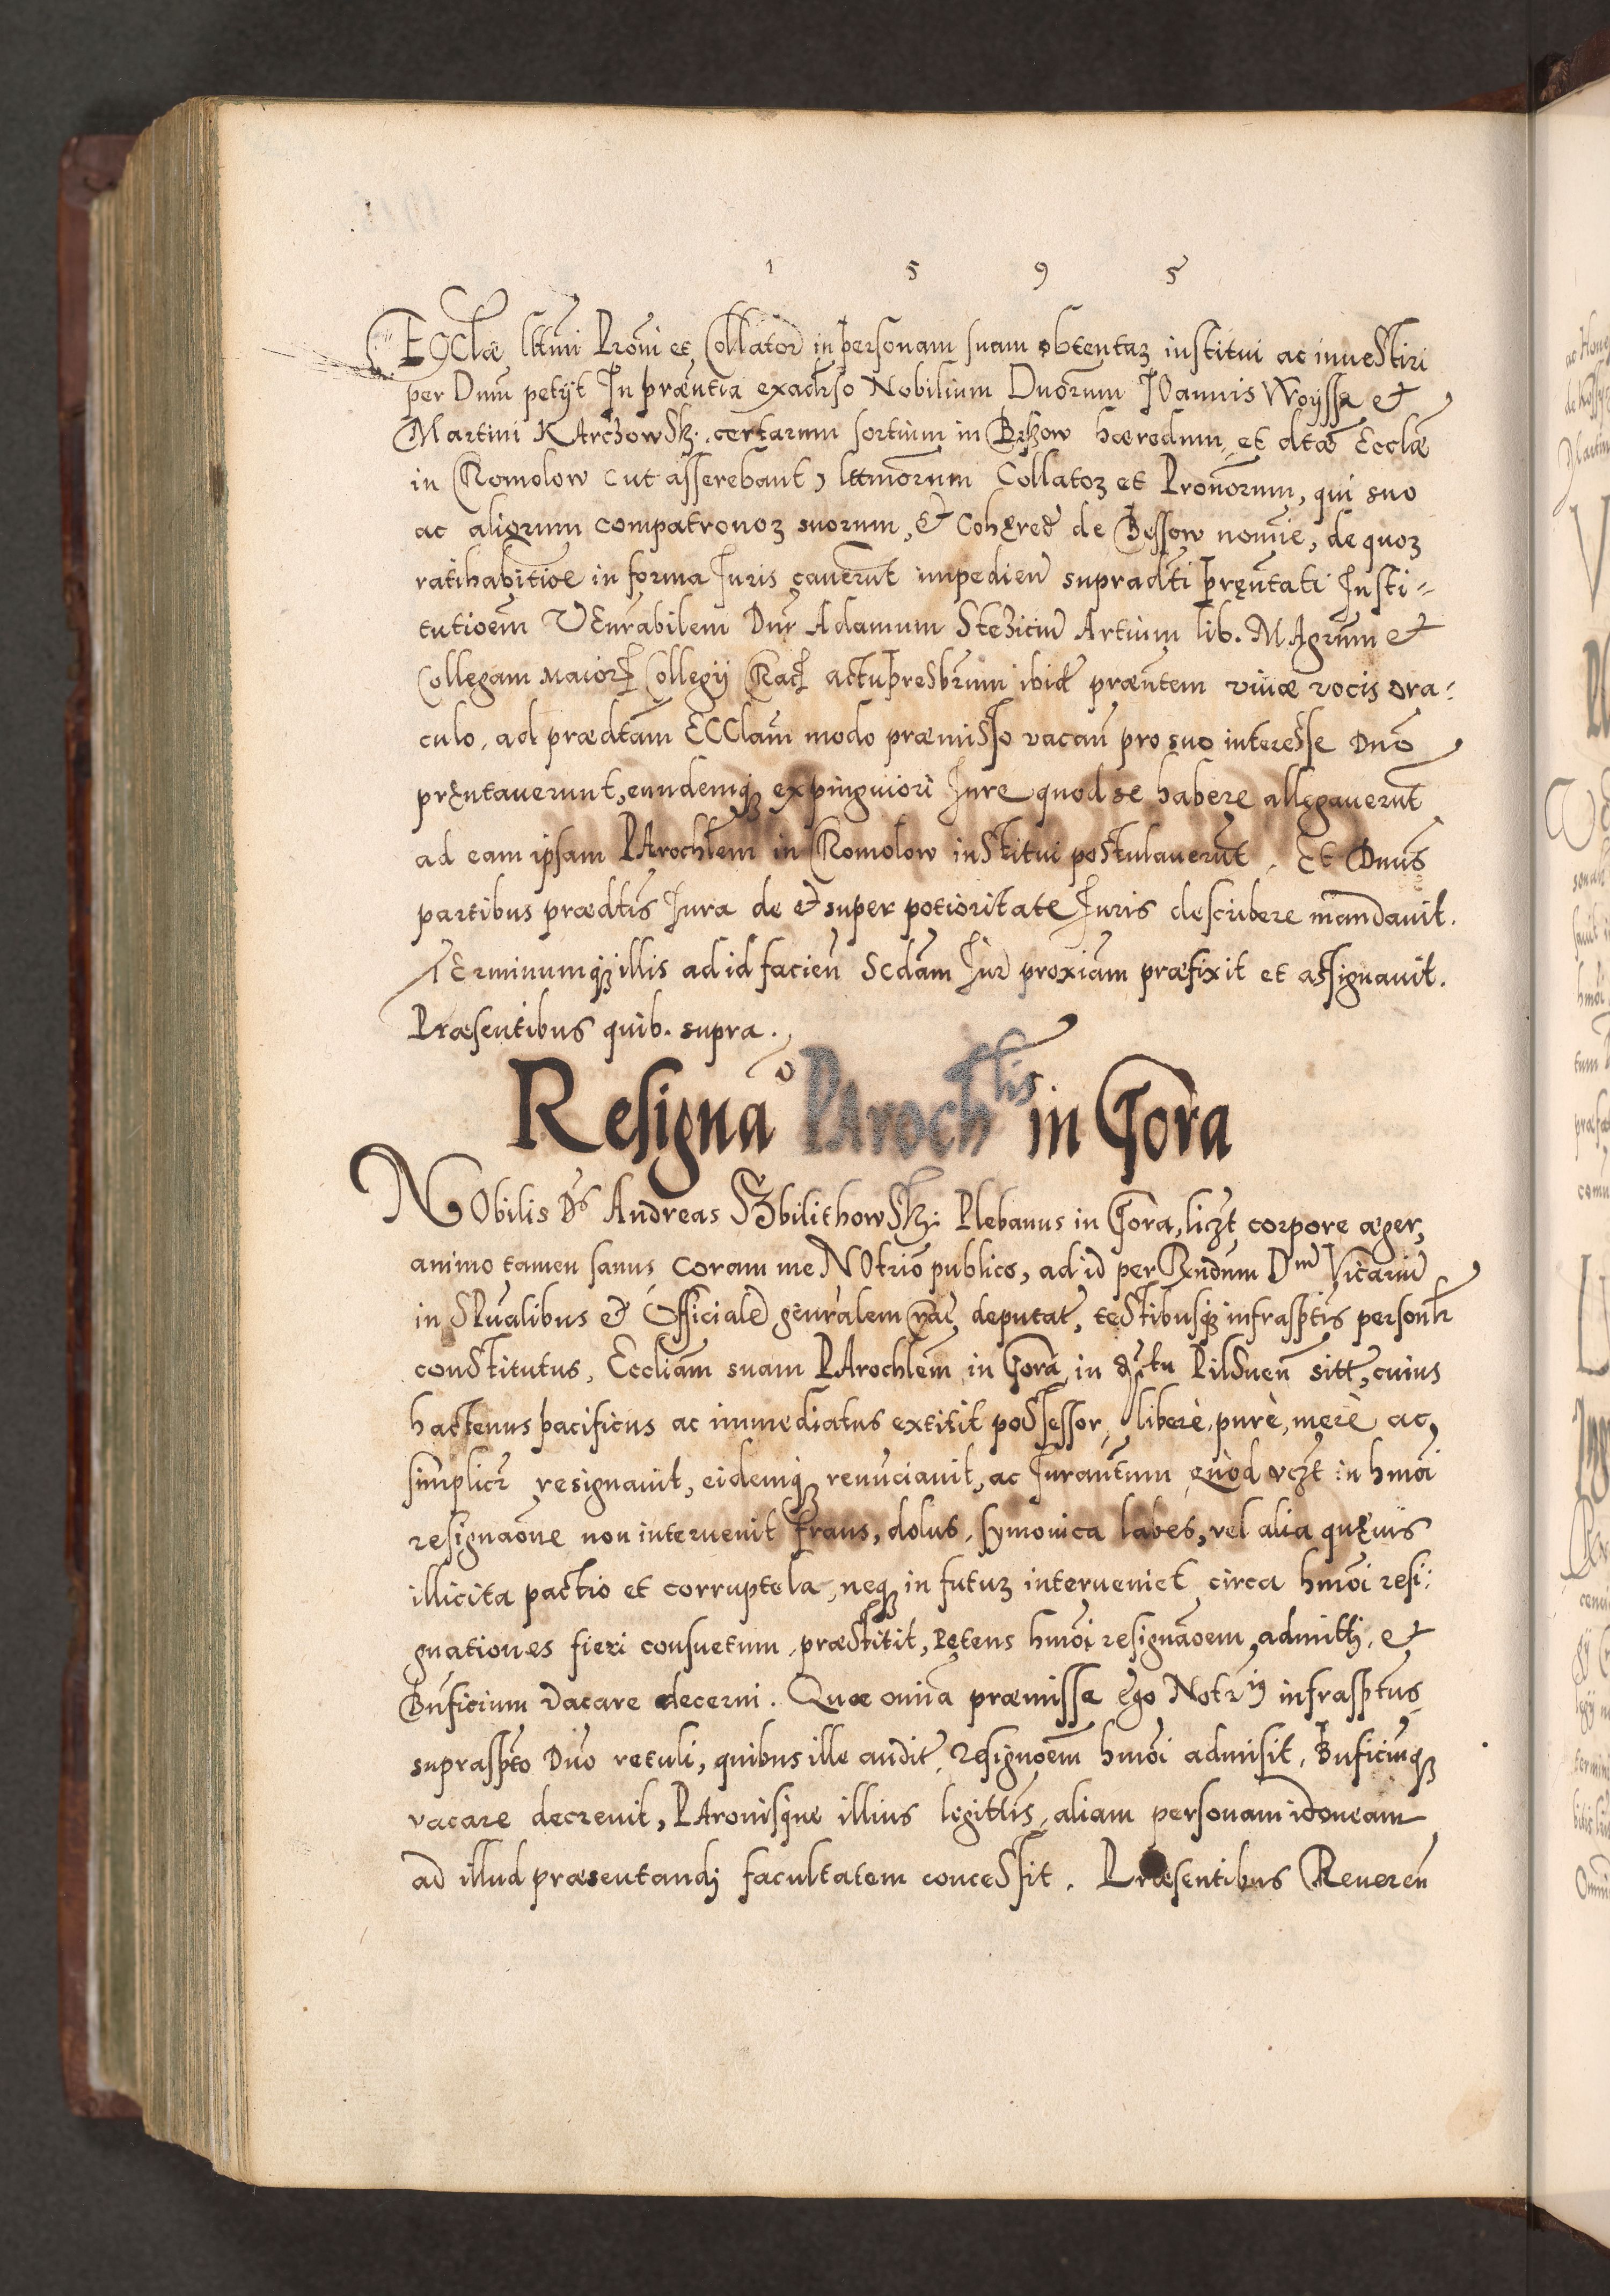 1 5 9 5
Ecclæ lttmi Proni et Collator in personam suam obtentaʒ institui ac inuestiri
per Dnum petijt In præntia exaduso Nobilium Dnorum Ioannis Woyssa et
Martini Karczowsk: certarum sortium in haeredum et dtæ Ecclæ
in Romolow (ut asserebant) lttmorum Collatoʒ et Pronorum, qui suo
ac aliorum compatronoʒ suorum, et Cohæred de Bessow nomie, de quoʒ
ratihabitioe in forma Iuris cauerunt impedien supradti pręntati Insti-
tutioem Venrabilem Dnm Adamum Steʒiciu Artium lib. Magrum et
Collegam Maior Collegij Rac actu presbrum ibid præntem viuæ vocis ora-
culo, ad prædtam Ecclam modo præmisso vacan pro suo interesse Dno
pręntauerunt, eundemqʒ ex pinguiori Iure quod se habere allegauerunt
ad eam ipsam Parochlem in Romolow institui postulauerunt. Et Dnus
partibus prædtis Iura de et super potioritate Iuris describere mandauit.
Terminumqʒ illis ad id facien Scdam Iur proxiam præfixit et assignauit.
Præsentibus quib. supra.
Resigna[ti]o Parochlis in Gora
Nobilis Ds Andreas Sʒbilithowsk: Plebanus in Gora, licʒt corpore æger,
animo tamen sanus coram me Notrio publico, ad id per Rndum Dnu Vicariu
in Spualibus et Officiale genralem deputat, testibusqʒ infrasptis personlr
constitutus, Eccliam suam Parochlem in Gora in Pilsnen sitt, cuius
hactenus pacificus ac immediatus extitit possessor, libere, pure, mere ac
simplicr resignauit, eidemqʒ renuciauit, ac Iurantum quod vcʒt in hmoi
resignaone non interuenit fraus, dolus, symonica labes, vel alia quęuis
illicita pactio et corruptela, neqʒ in futuʒ interueniet circa hmoi resi-
gnationes fieri consuetum præstitit, petens hmoi resignaoem admitti, et
Bnficium vacare decerni. Quæ omia præmissa Ego Notrius infrasptus
supraspto Dno retuli, quibus ille audit, resignoem hmoi admisit, Bnficiuqʒ
vacare decreuit, Patronisque illius legittis, aliam personam idoneam
ad illud præsentandi facultatem concessit. Præsentibus Reueren